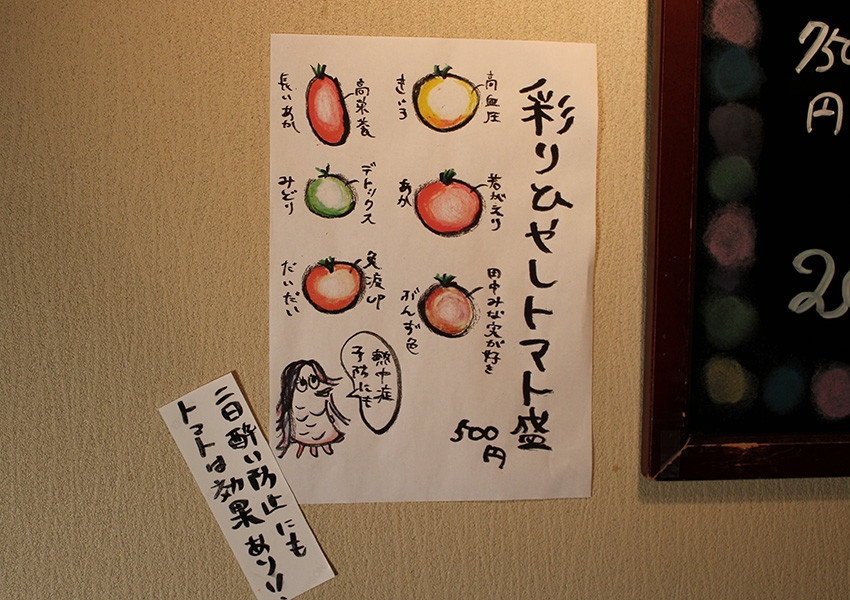 彩りひやしトマト盛
500円
高血圧
きいろ
若がえり
あか
田中みな実が好き
ぐんず色
高栄養
長いあか
デトックス
みどり
免疫UP
だいだい
熱中症
予防にも
二日酔い防止にも
トマトは効果あり!!
750
円